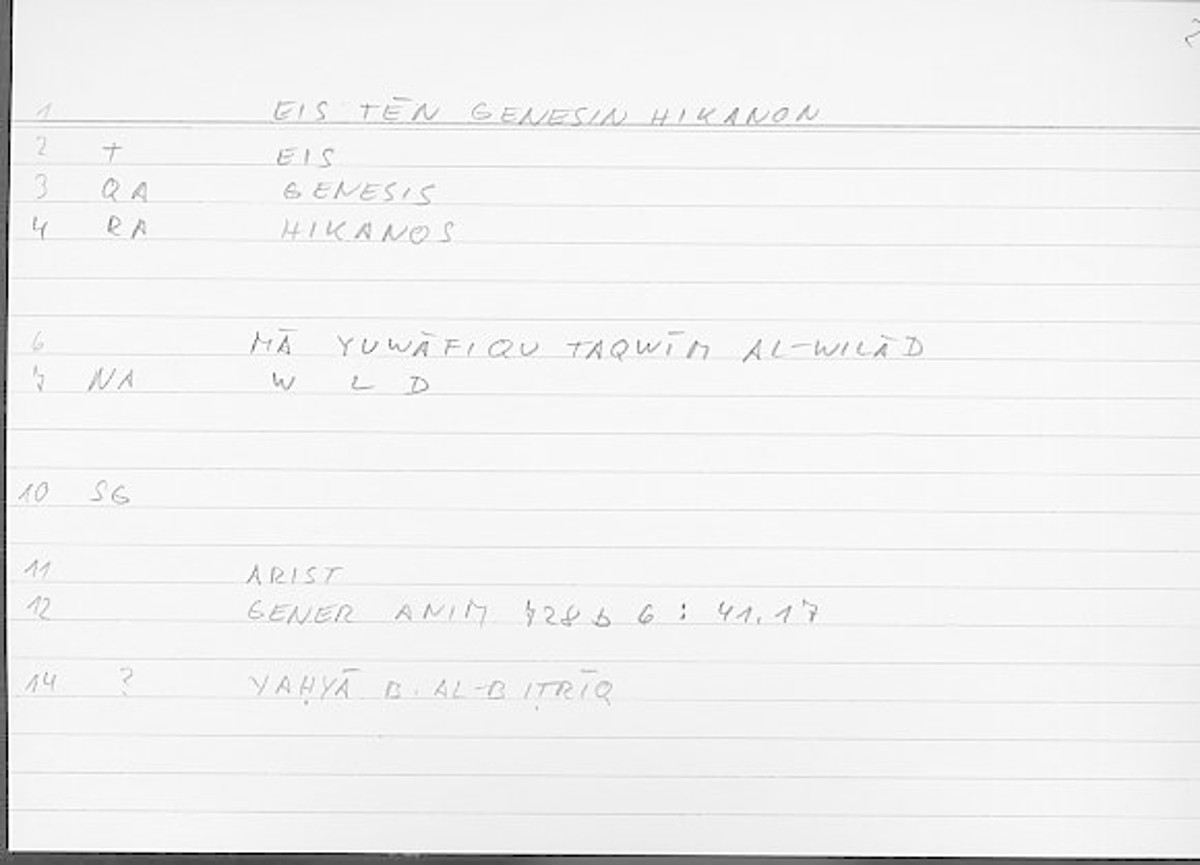 1 EIS TĒN GENESIN HIKANON
2 + EIS
3 QA GENESIS
4 RA HIKANOS
6 MĀ YUWĀFIQU TAQWĪM AL-WILĀD
7 NA W L D
10 SG
11 ARIST
12 GENER ANIM 728 b 6 : 41.17
14 ? YAḤYĀ B. AL-BIṬRĪQ